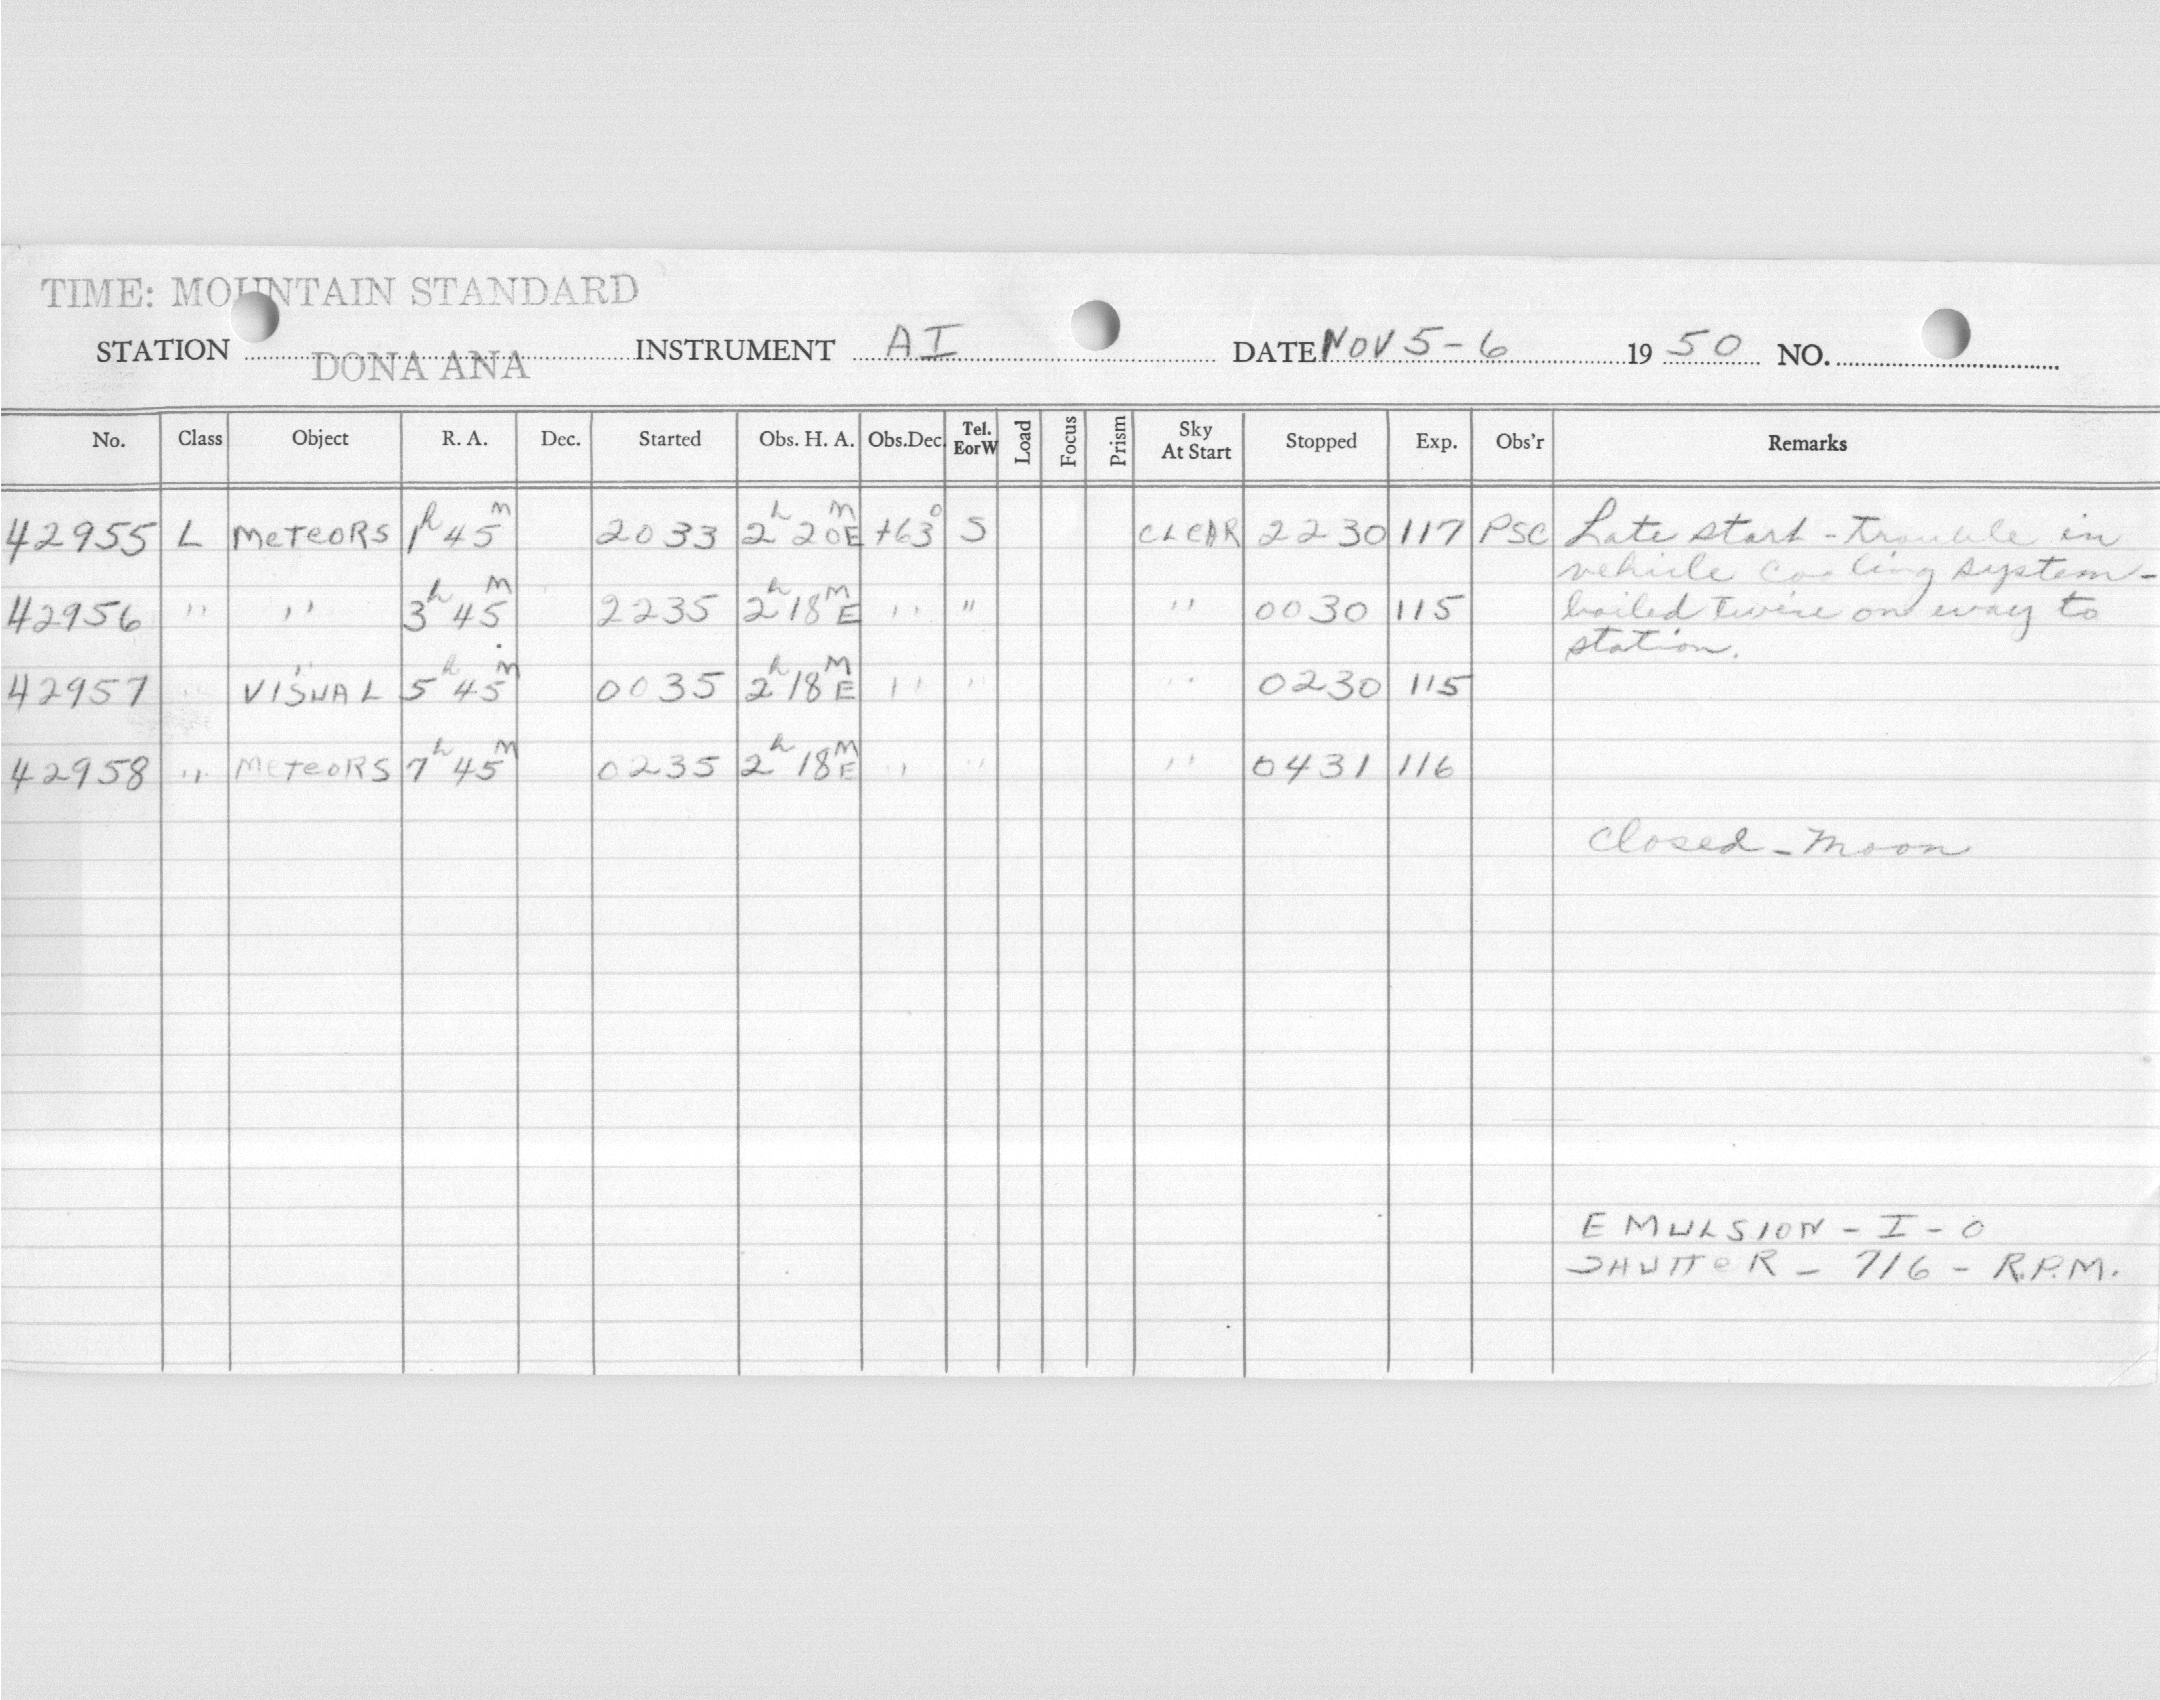 TIME: MOUNTAIN STANDARD
STATION DONA ANA INSTRUMENT AI DATE NOV 5-6 1950 NO.
No. Class Object R. A. Dec. Started Obs. H. A. Obs.Dec. Tel. EorW Load Focus Prism Sky At Start Stopped Exp. Obs'r Remarks
42955 L METEORS 1h 45m 2033 2h 20m E +63° S CLEAR 2230 117 PSC Late start - trouble in
vehicle cooling system -
42956 " " 3h 45m 2235 2h 18m E " " " 0030 115 boiled twice on way to
station.
"
42957 " VISUAL 5h 45m 0035 2h 18m E " " " 0230 115
42958 " METEORS 7h 45m 0235 2h 18m E " " " 0431 116
Closed - Moon
EMULSION - I - O
SHUTTER - 716 - R.P.M.